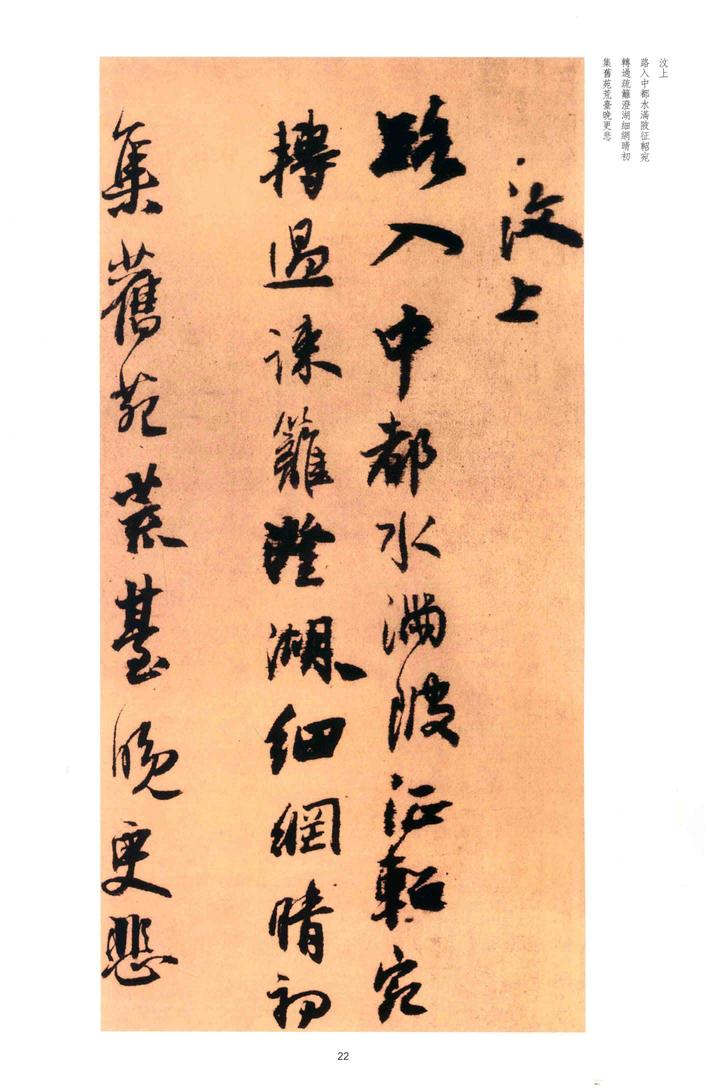 汶上
路入中都水滿陂征軺宛
轉過疏籬澄湖細網晴初
集舊苑荒臺晚更悲
汶上
路入中都水滿陂征軺宛
轉過疏籬澄湖細網晴初
集舊苑荒臺晚更悲
22